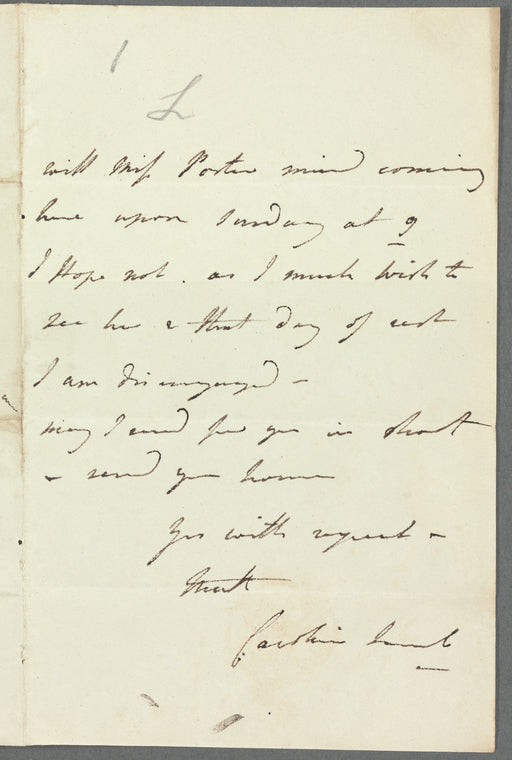 1
L
will Miss Porter mind coming
here upon Sunday at 9
I Hope not . as I much Wish to
see her & that day of rest
I am disengaged –
may I send for you in short
& send you home
Yrs with respect &
truth
Caroline Lamb